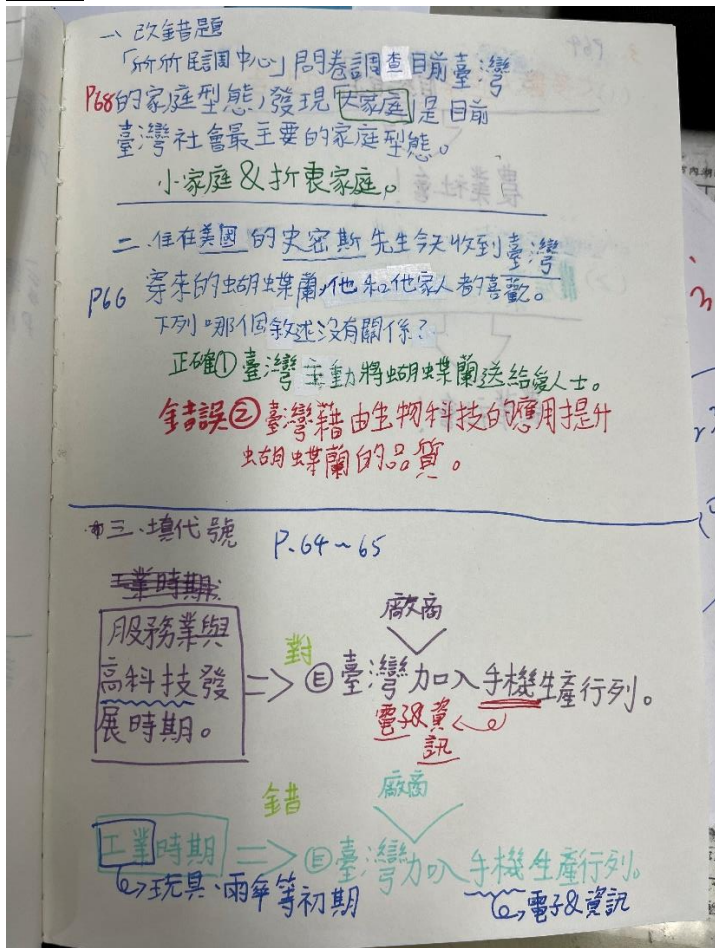 一、改錯題
「祈祈民調中心」問卷調查目前臺灣
P68的家庭型態,發現大家庭是目前
臺灣社會最主要的家庭型態。
小家庭&折衷家庭。
二、住在美國的史密斯先生今天收到臺灣
P66 寄來的蝴蝶蘭,他和他家人都喜歡。
下列哪個敘述沒有關係?
正確①臺灣主動將蝴蝶蘭送給愛人士。
錯誤②臺灣藉由生物科技的應用提升
蝴蝶蘭的品質。
三、填代號 P.64~65
工業時期
廠商
服務業與
高科技發
展時期。
對
=> Ⓔ臺灣加入手機生產行列。
電子&資
訊
錯
廠商
工業時期 => Ⓔ臺灣加入手機生產行列。
玩具、雨傘等初期
電子&資訊